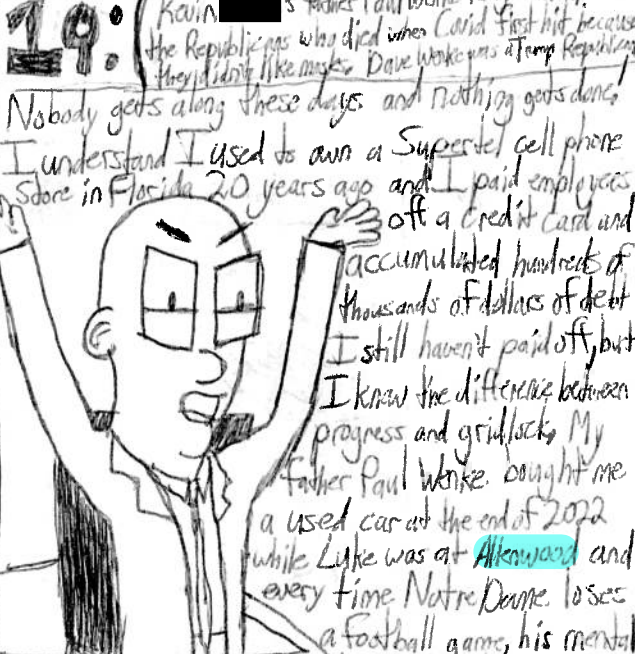 19:
Kevin 's father Paul
the Republicans who died when Covid first hit because
they didn't like masks. Dave Wenke was a Trump Republican
Nobody gets along these days and nothing gets done!
I understand I used to own a Supertel cell phone
store in Florida 20 years ago and I paid employees
off a credit card and
accumulated hundreds of
thousands of dollars of debt
I still haven't paid off, but
I know the difference between
progress and gridlock. My
father Paul Wenke bought me
a used car at the end of 2022
while Luke was at Allenwood and
every time Notre Dame loses
a football game, his mental